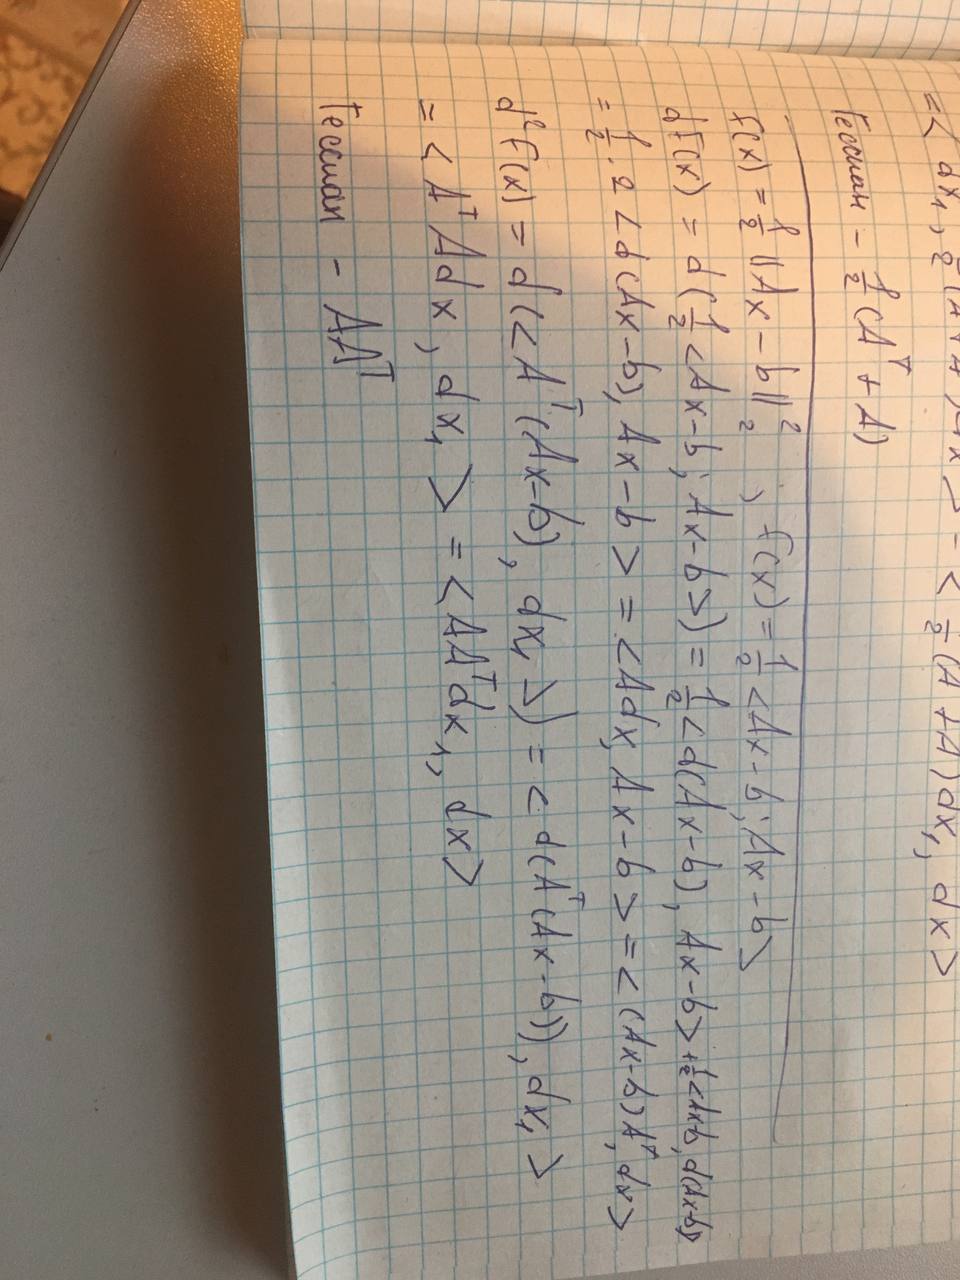 = < dx₁, ½(A + A^T)dx > = < ½(A^T + A)dx₁, dx >
Гессиан - ½(A^T + A)
f(x) = ½ ||Ax - b||₂², f(x) = ½ <Ax - b; Ax - b>
df(x) = d(½ <Ax - b; Ax - b>) = ½ <d(Ax - b), Ax - b> + ½ <Ax-b, d(Ax-b)>
= ½ · 2 <d(Ax - b), Ax - b> = <Adx, Ax - b> = <(Ax - b)A^T, dx>
d²f(x) = d(<A^T(Ax-b), dx₁>) = <d(A^T(Ax - b)), dx₁>
= <A^T Adx, dx₁> = <AA^T dx₁, dx>
Гессиан - AA^T